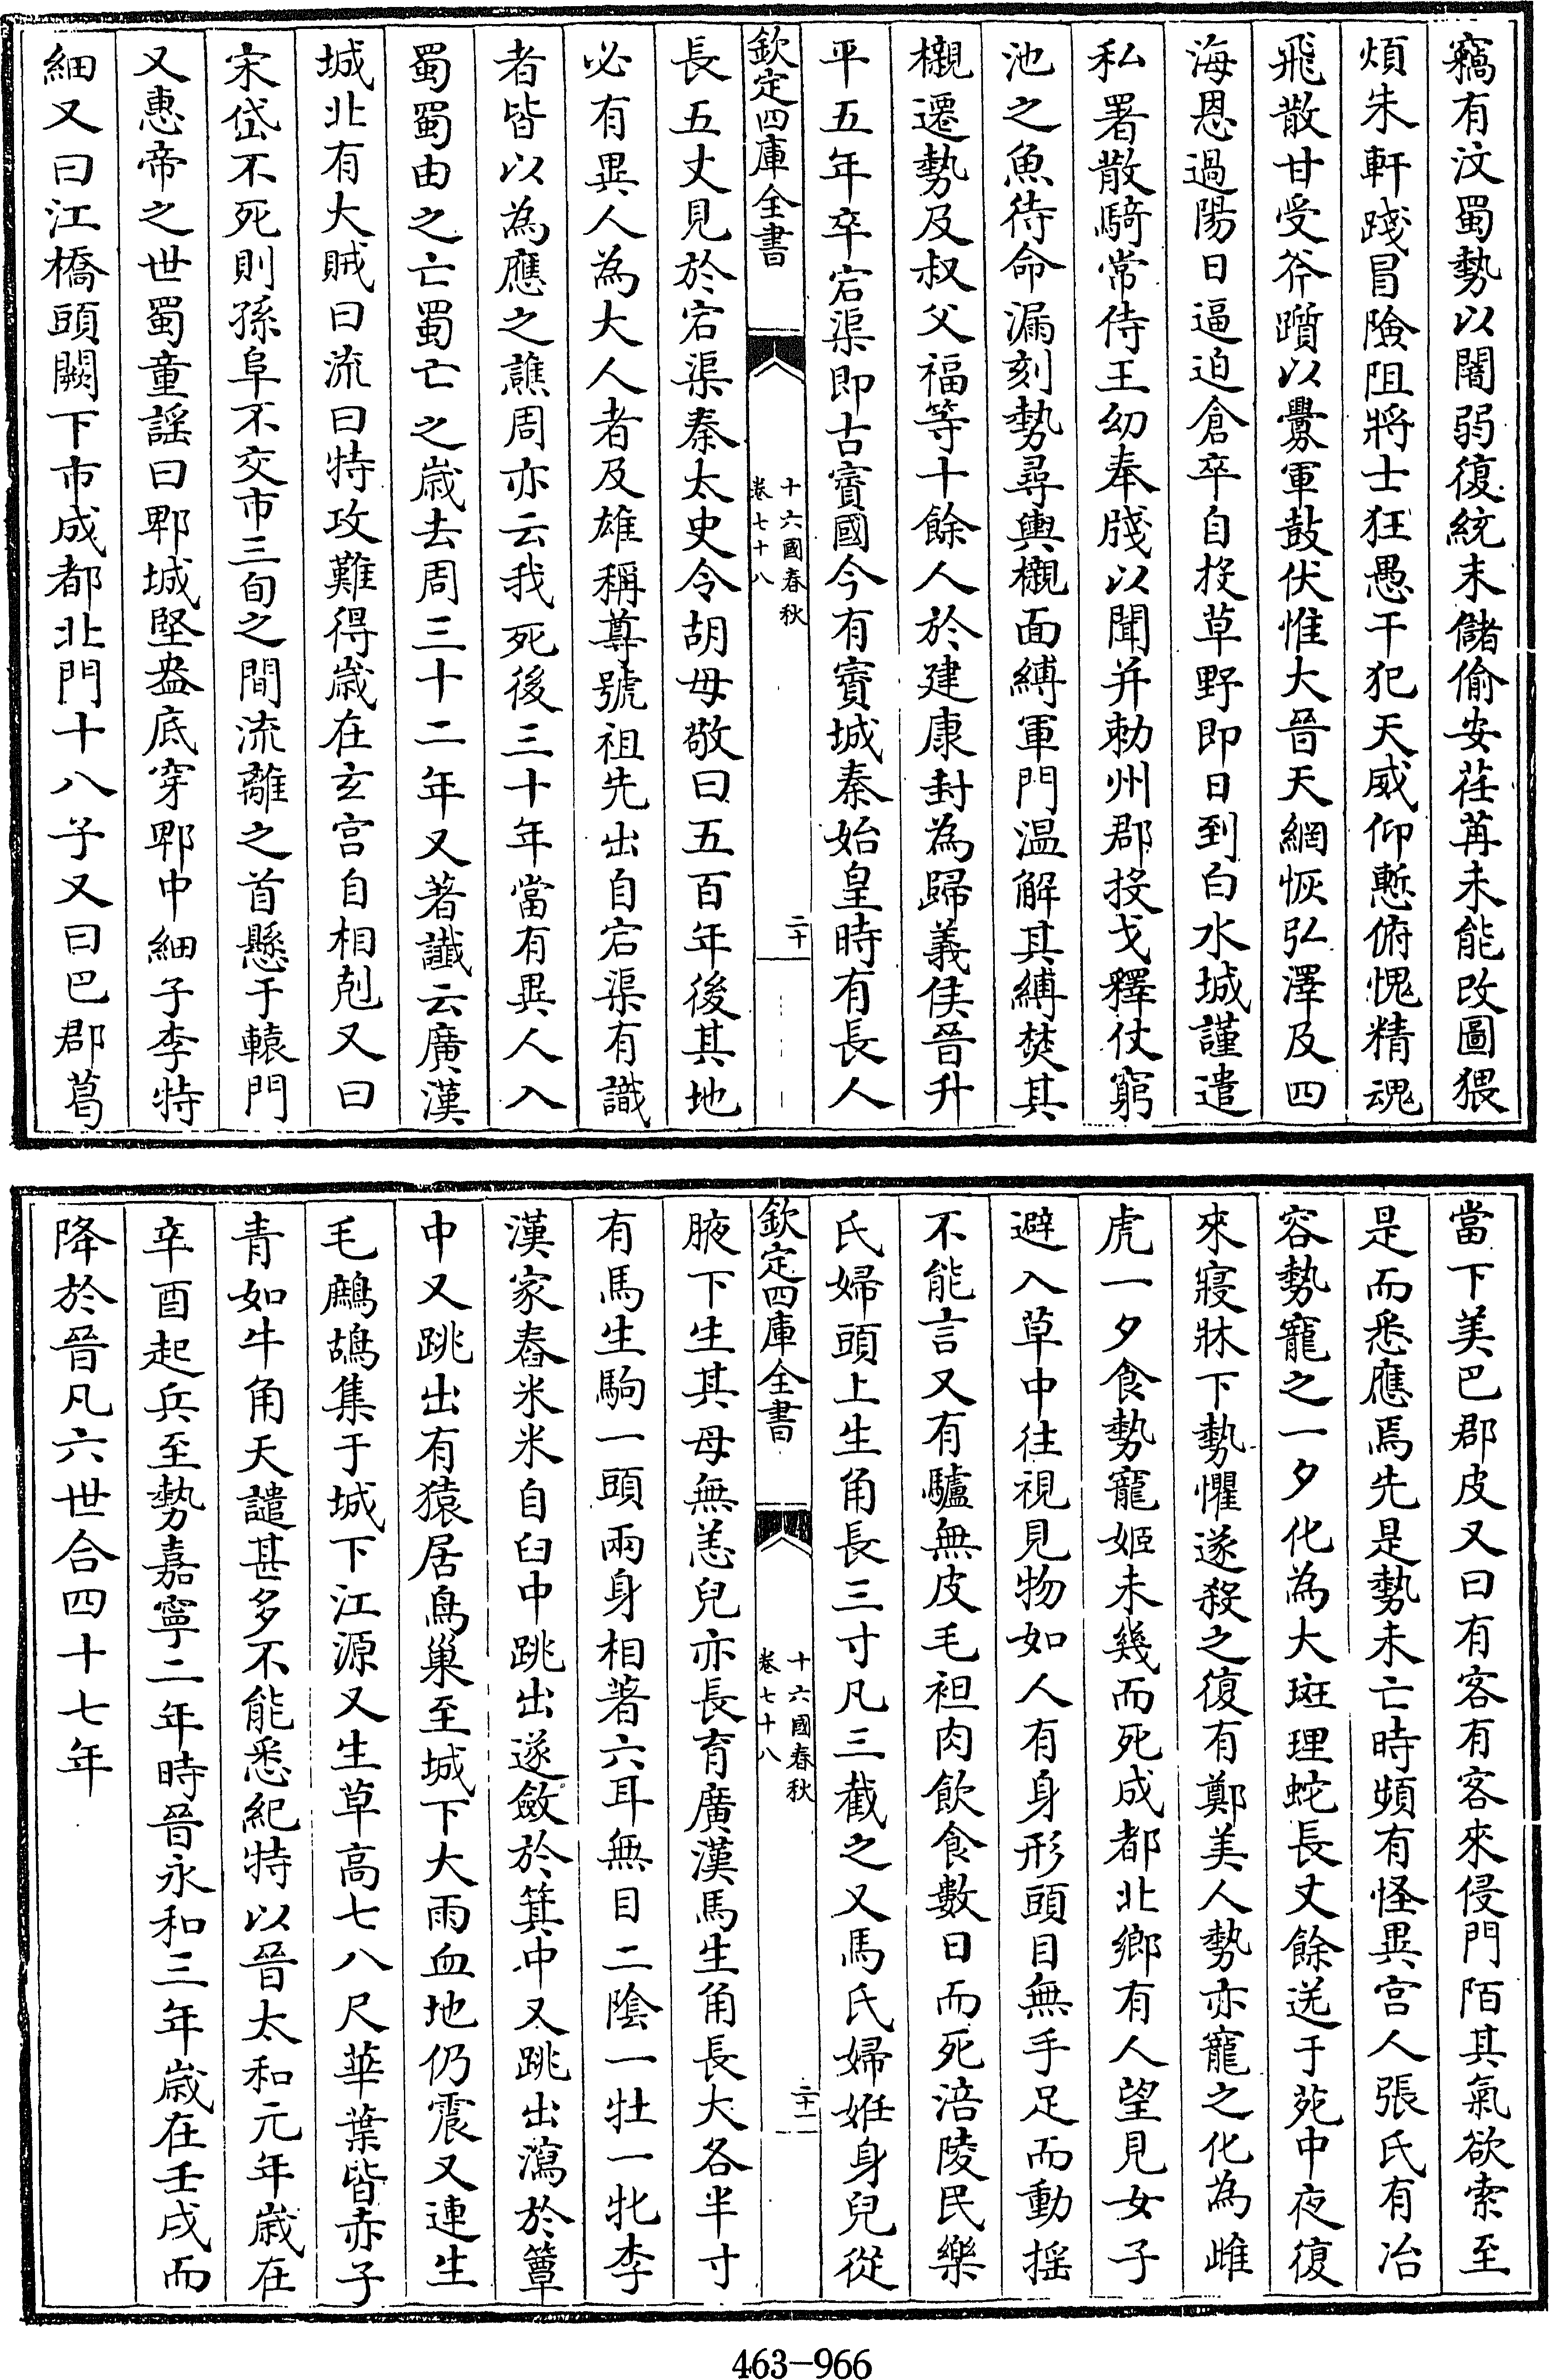 竊有汶蜀勢以闇弱復統末儲偷安荏苒未能改圖猥
煩朱軒踐冒險阻將士狂愚干犯天威仰慙俯愧精魂
飛散甘受斧躓以釁軍鼓伏惟大晉天網恢弘澤及四
海恩過陽日逼迫倉卒自投草野即日到白水城謹遣
私署散騎常侍王幼奉牋以聞并勅州郡投戈釋仗窮
池之魚待命漏刻勢尋輿櫬面縛軍門温解其縛焚其
櫬遷勢及叔父福等十餘人於建康封為歸義侯晉升
平五年卒宕渠即古賨國今有賨城秦始皇時有長人
欽定四庫全書
十六國春秋
卷七十八
二十
長五丈見於宕渠秦太史令胡毋敬曰五百年後其地
必有異人為大人者及雄稱尊號祖先出自宕渠有識
者皆以為應之譙周亦云我死後三十年當有異人入
蜀蜀由之亡蜀亡之歲去周三十二年又著讖云廣漢
城北有大賊曰流曰特攻難得歲在玄宮自相剋又曰
宋岱不死則孫阜不交市三旬之間流離之首懸于轅門
又惠帝之世蜀童謡曰郫城堅盎底穿郫中細子李特
細又曰江橋頭闕下市成都北門十八子又曰巴郡葛
當下美巴郡皮又曰有客有客來侵門陌其氣欲索至
是而悉應焉先是勢未亡時頻有怪異宫人張氏有冶
容勢寵之一夕化為大斑理蛇長丈餘送于苑中夜復
來寢牀下勢懼遂殺之復有鄭美人勢亦寵之化為雌
虎一夕食勢寵姬未幾而死成都北鄉有人望見女子
避入草中往視見物如人有身形頭目無手足而動揺
不能言又有驢無皮毛袒肉飲食數日而死涪陵民樂
氏婦頭上生角長三寸凡三截之又馬氏婦姙身兒從
欽定四庫全書
十六國春秋
卷七十八
二十一
腋下生其母無恙兒亦長育廣漢馬生角長大各半寸
有馬生駒一頭兩身相著六耳無目二陰一牡一牝李
漢家舂米米自臼中跳出遂斂於箕中又跳出瀉於簟
中又跳出有猿居鳥巢至城下大雨血地仍震又連生
毛鷓鴣集于城下江源又生草高七八尺華葉皆赤子
青如牛角天譴甚多不能悉紀特以晉太和元年歲在
辛酉起兵至勢嘉寧二年時晉永和三年歲在壬戌而
降於晉凡六世合四十七年
463-966